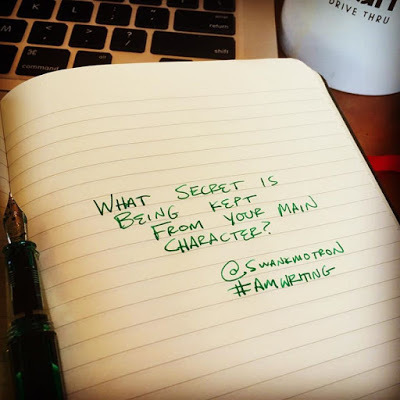 command
option
shift
DRIVE THRU
WHAT SECRET IS
BEING KEPT
FROM YOUR MAIN
CHARACTER?
@SWANKMOTRON
#AMWRITING